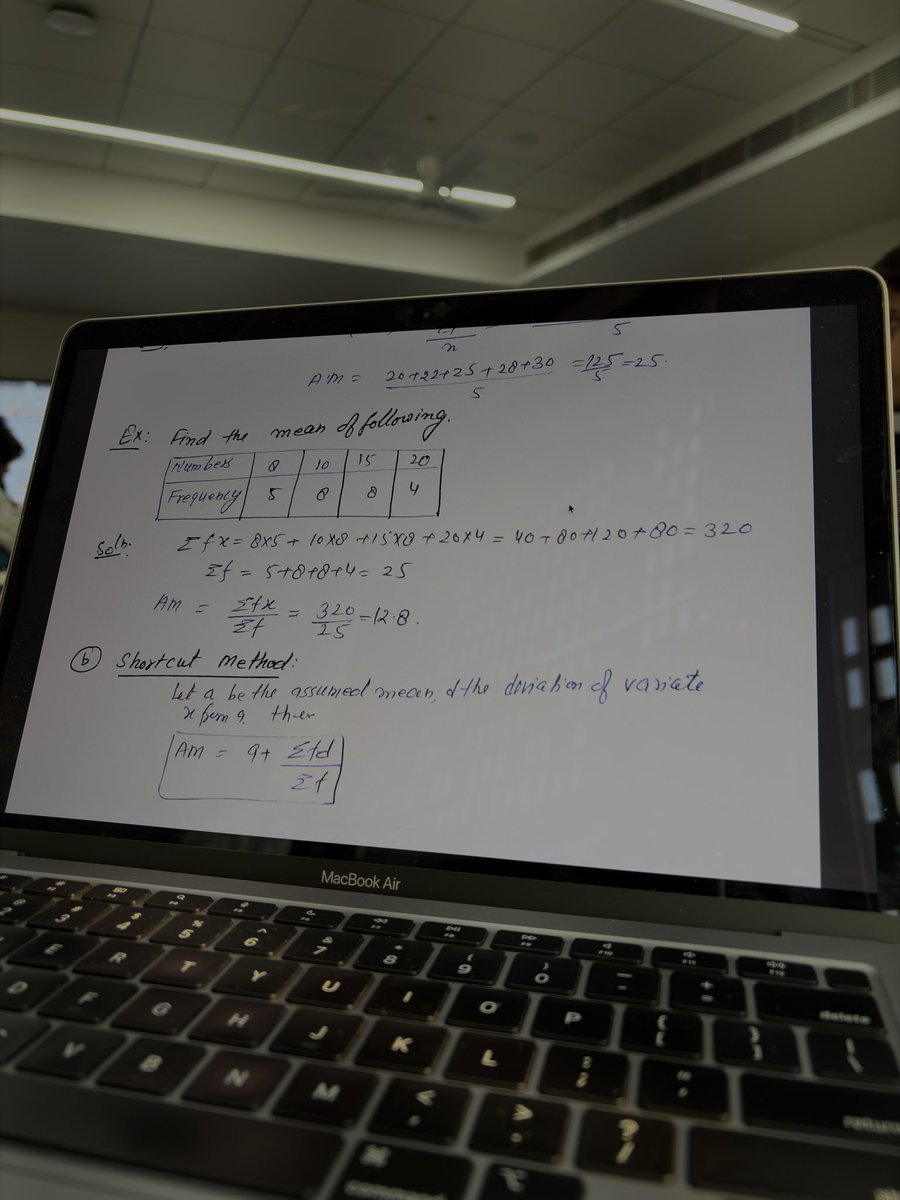 n 5
AM = 20+22+25+28+30 / 5 = 125/5 = 25.
Ex: Find the mean of following.
Numbers 8 10 15 20
Frequency 5 8 8 4
Soln: Σfx = 8x5 + 10x8 + 15x8 + 20x4 = 40+80+120+80 = 320
Σf = 5+8+8+4 = 25
AM = Σfx/Σf = 320/25 = 12.8.
(b) Shortcut Method:
Let a be the assumed mean, d the deviation of variate
x from a. then
AM = a + Σfd/Σf
MacBook Air
# 3 $ 4 % 5 ^ 6 & 7 * 8 ( 9 ) 0 _ - + =
E R T Y U I O P { [ } ] | \ delete
D F G H J K L : ; " ' return
V B N M < , > . ? /
⌘ command ⌥